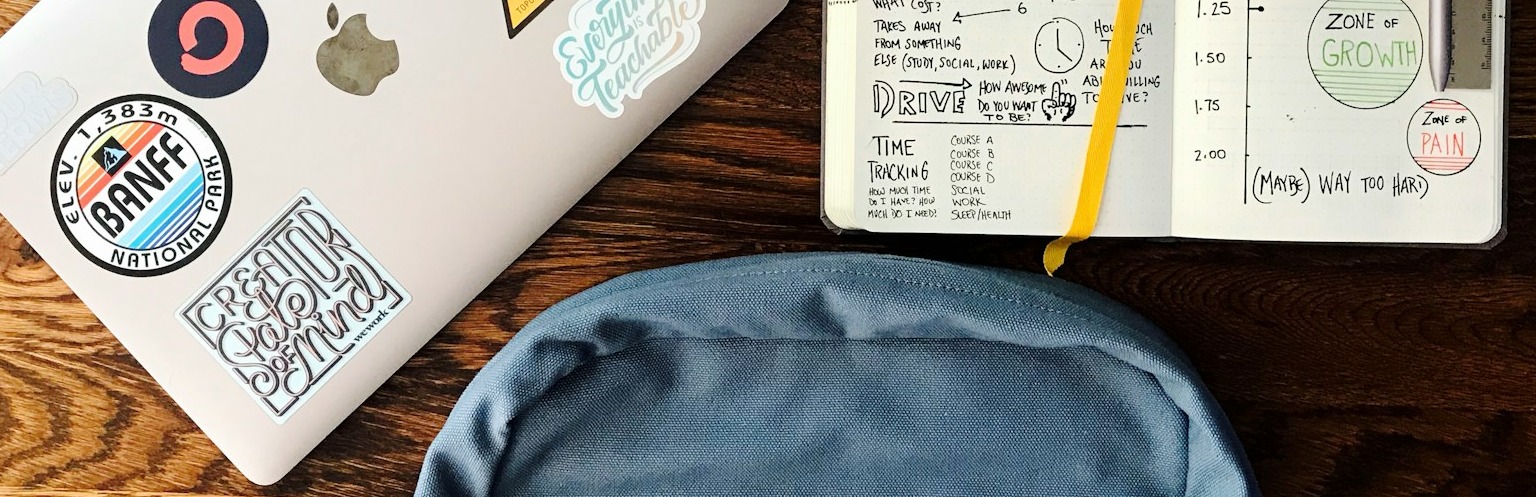 ELEV. 1,383m
BANFF
NATIONAL PARK
CREATOR
State
OF Mind
wework
Everything
IS
Teachable
WHAT COST?
6
TAKES AWAY
FROM SOMETHING
ELSE (STUDY, SOCIAL, WORK)
HOW MUCH
TIME
ARE YOU
ABLE/WILLING
TO GIVE?
DRIVE
HOW AWESOME
DO YOU WANT
TO BE?
TIME
TRACKING
HOW MUCH TIME
DO I HAVE? HOW
MUCH DO I NEED?
COURSE A
COURSE B
COURSE C
COURSE D
SOCIAL
WORK
SLEEP/HEALTH
1.25
1.50
1.75
2.00
ZONE OF
GROWTH
ZONE OF
PAIN
(MAYBE) WAY TOO HARD